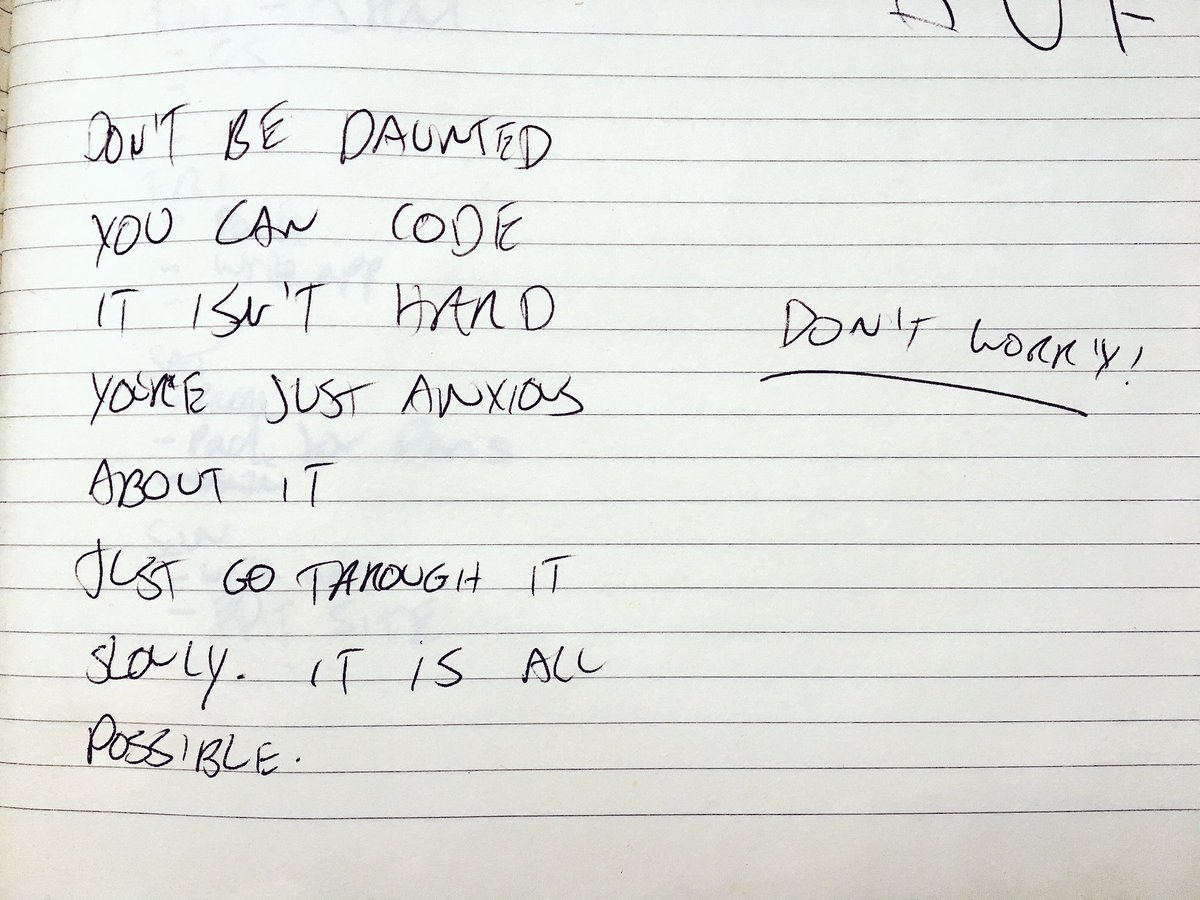 DON'T BE DAUNTED
YOU CAN CODE
IT ISN'T HARD
YOU'RE JUST ANXIOUS
ABOUT IT
JUST GO THROUGH IT
SLOWLY. IT IS ALL
POSSIBLE.
DON'T WORRY!